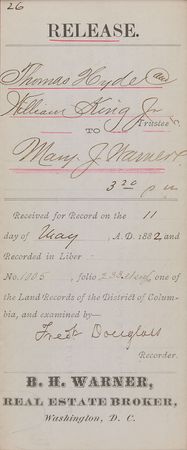 26
RELEASE.
Thomas Hyde and
William King Jr
Trustees
TO
Mary J. Warner
3 20 p m
Received for Record on the 11
day of May, A. D. 1882 and
Recorded in Liber
No. 1005, folio 233 et seq one of
the Land Records of the District of Colum-
bia, and examined by—
Fredk Douglass
Recorder.
B. H. WARNER,
REAL ESTATE BROKER,
Washington, D. C.